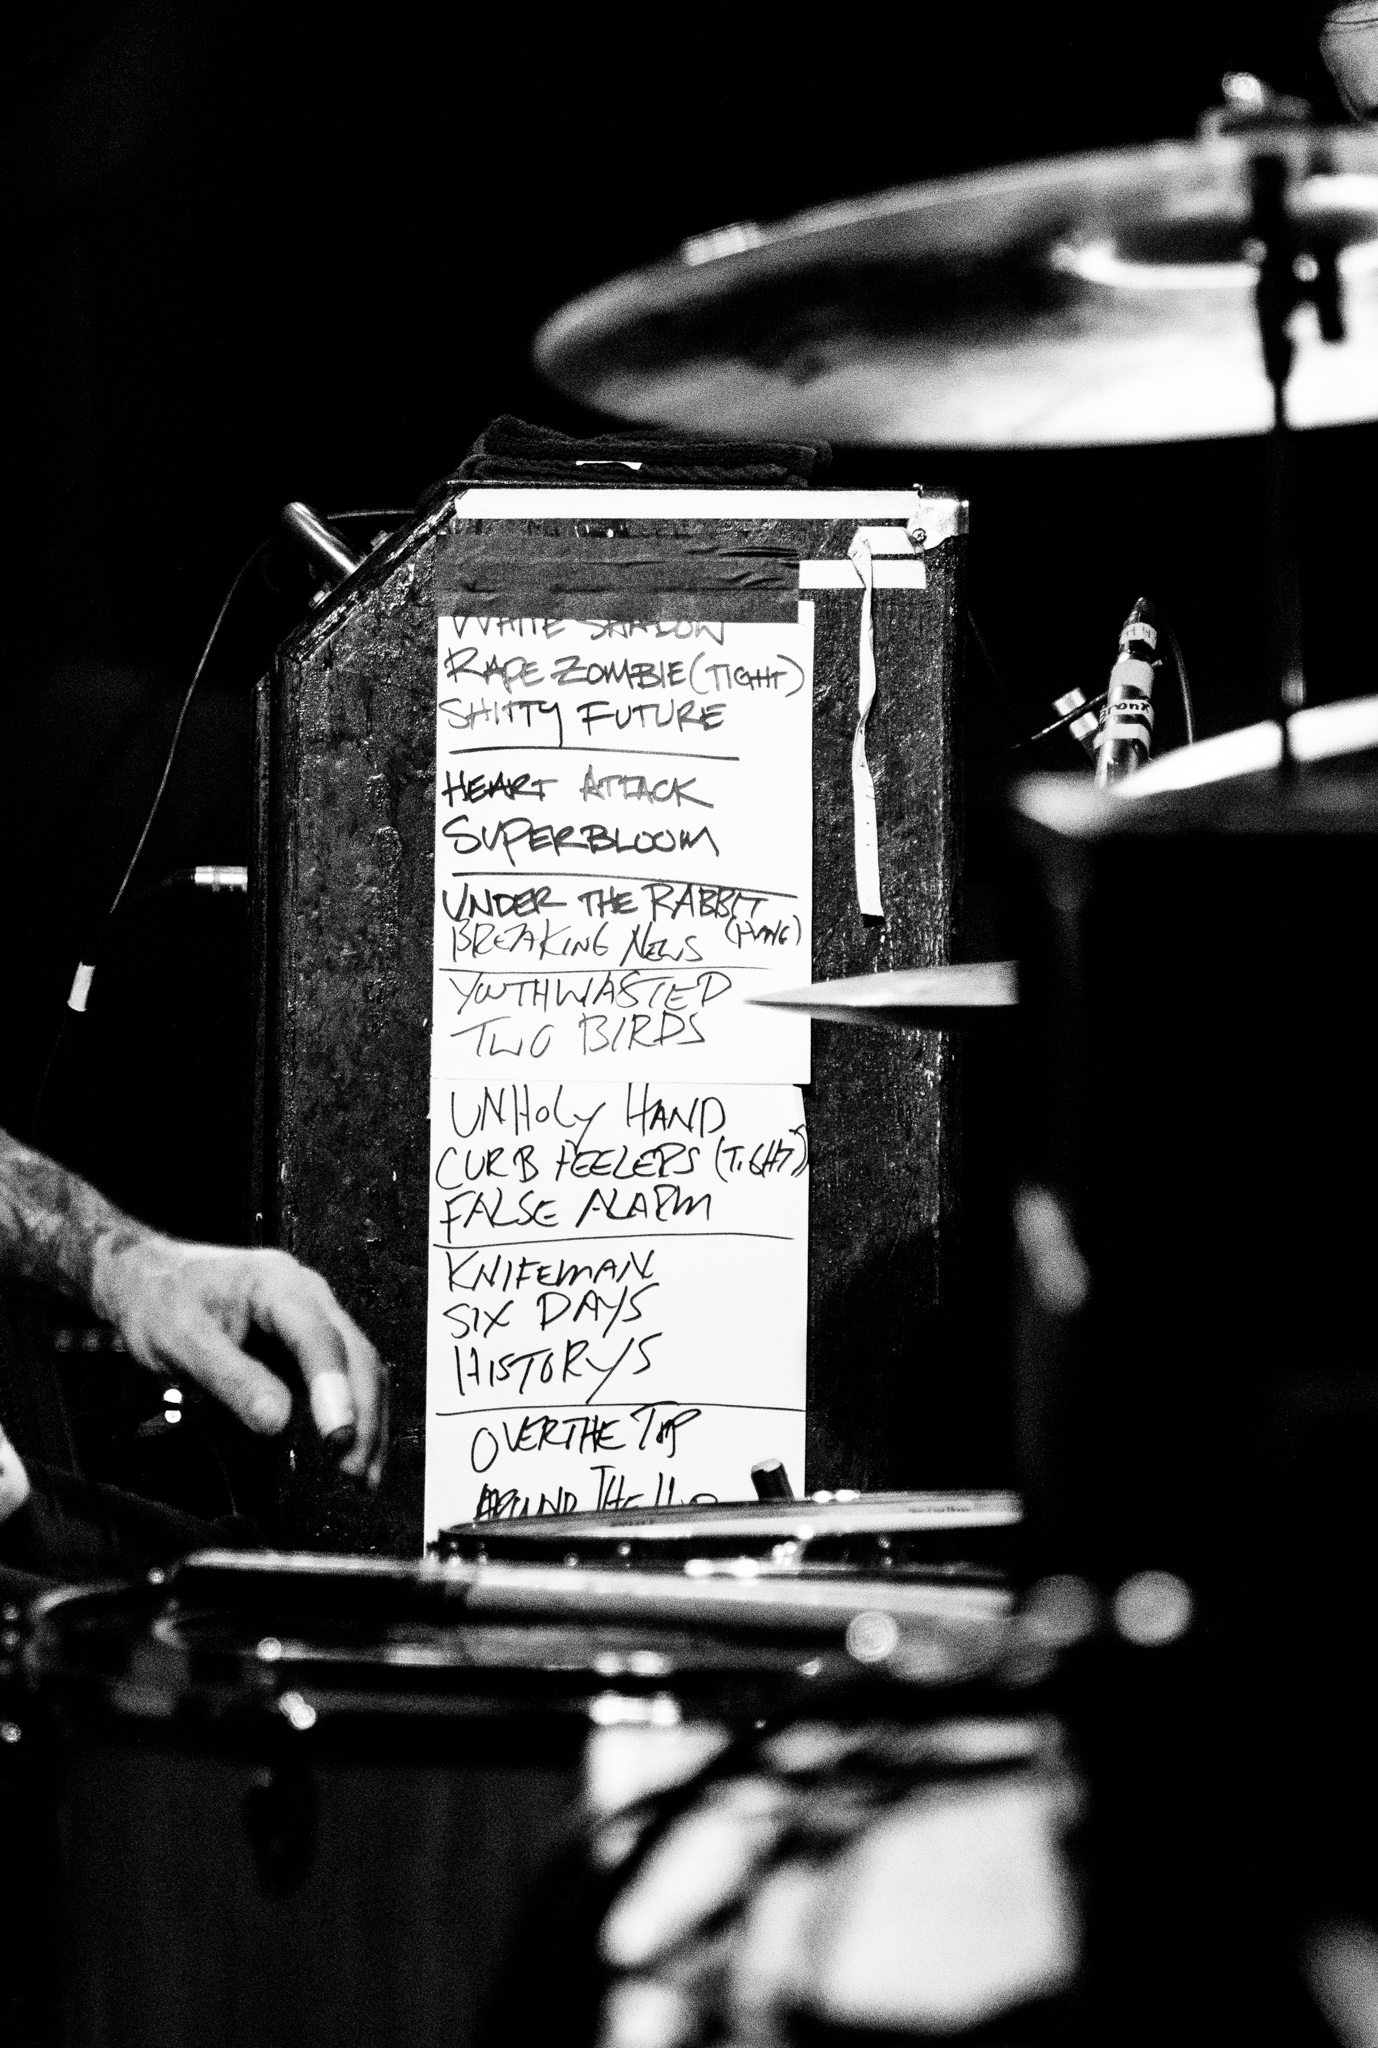 WHITE SHADOW
RAPE ZOMBIE (TIGHT)
SHITTY FUTURE
HEART ATTACK
SUPERBLOOM
UNDER THE RABBIT
BREAKING NEWS (HANG)
YOUTHWASTED
TWO BIRDS
UNHOLY HAND
CURB FEELERS (TIGHT)
FALSE ALARM
KNIFEMAN
SIX DAYS
HISTORYS
OVER THE TOP
AROUND THE